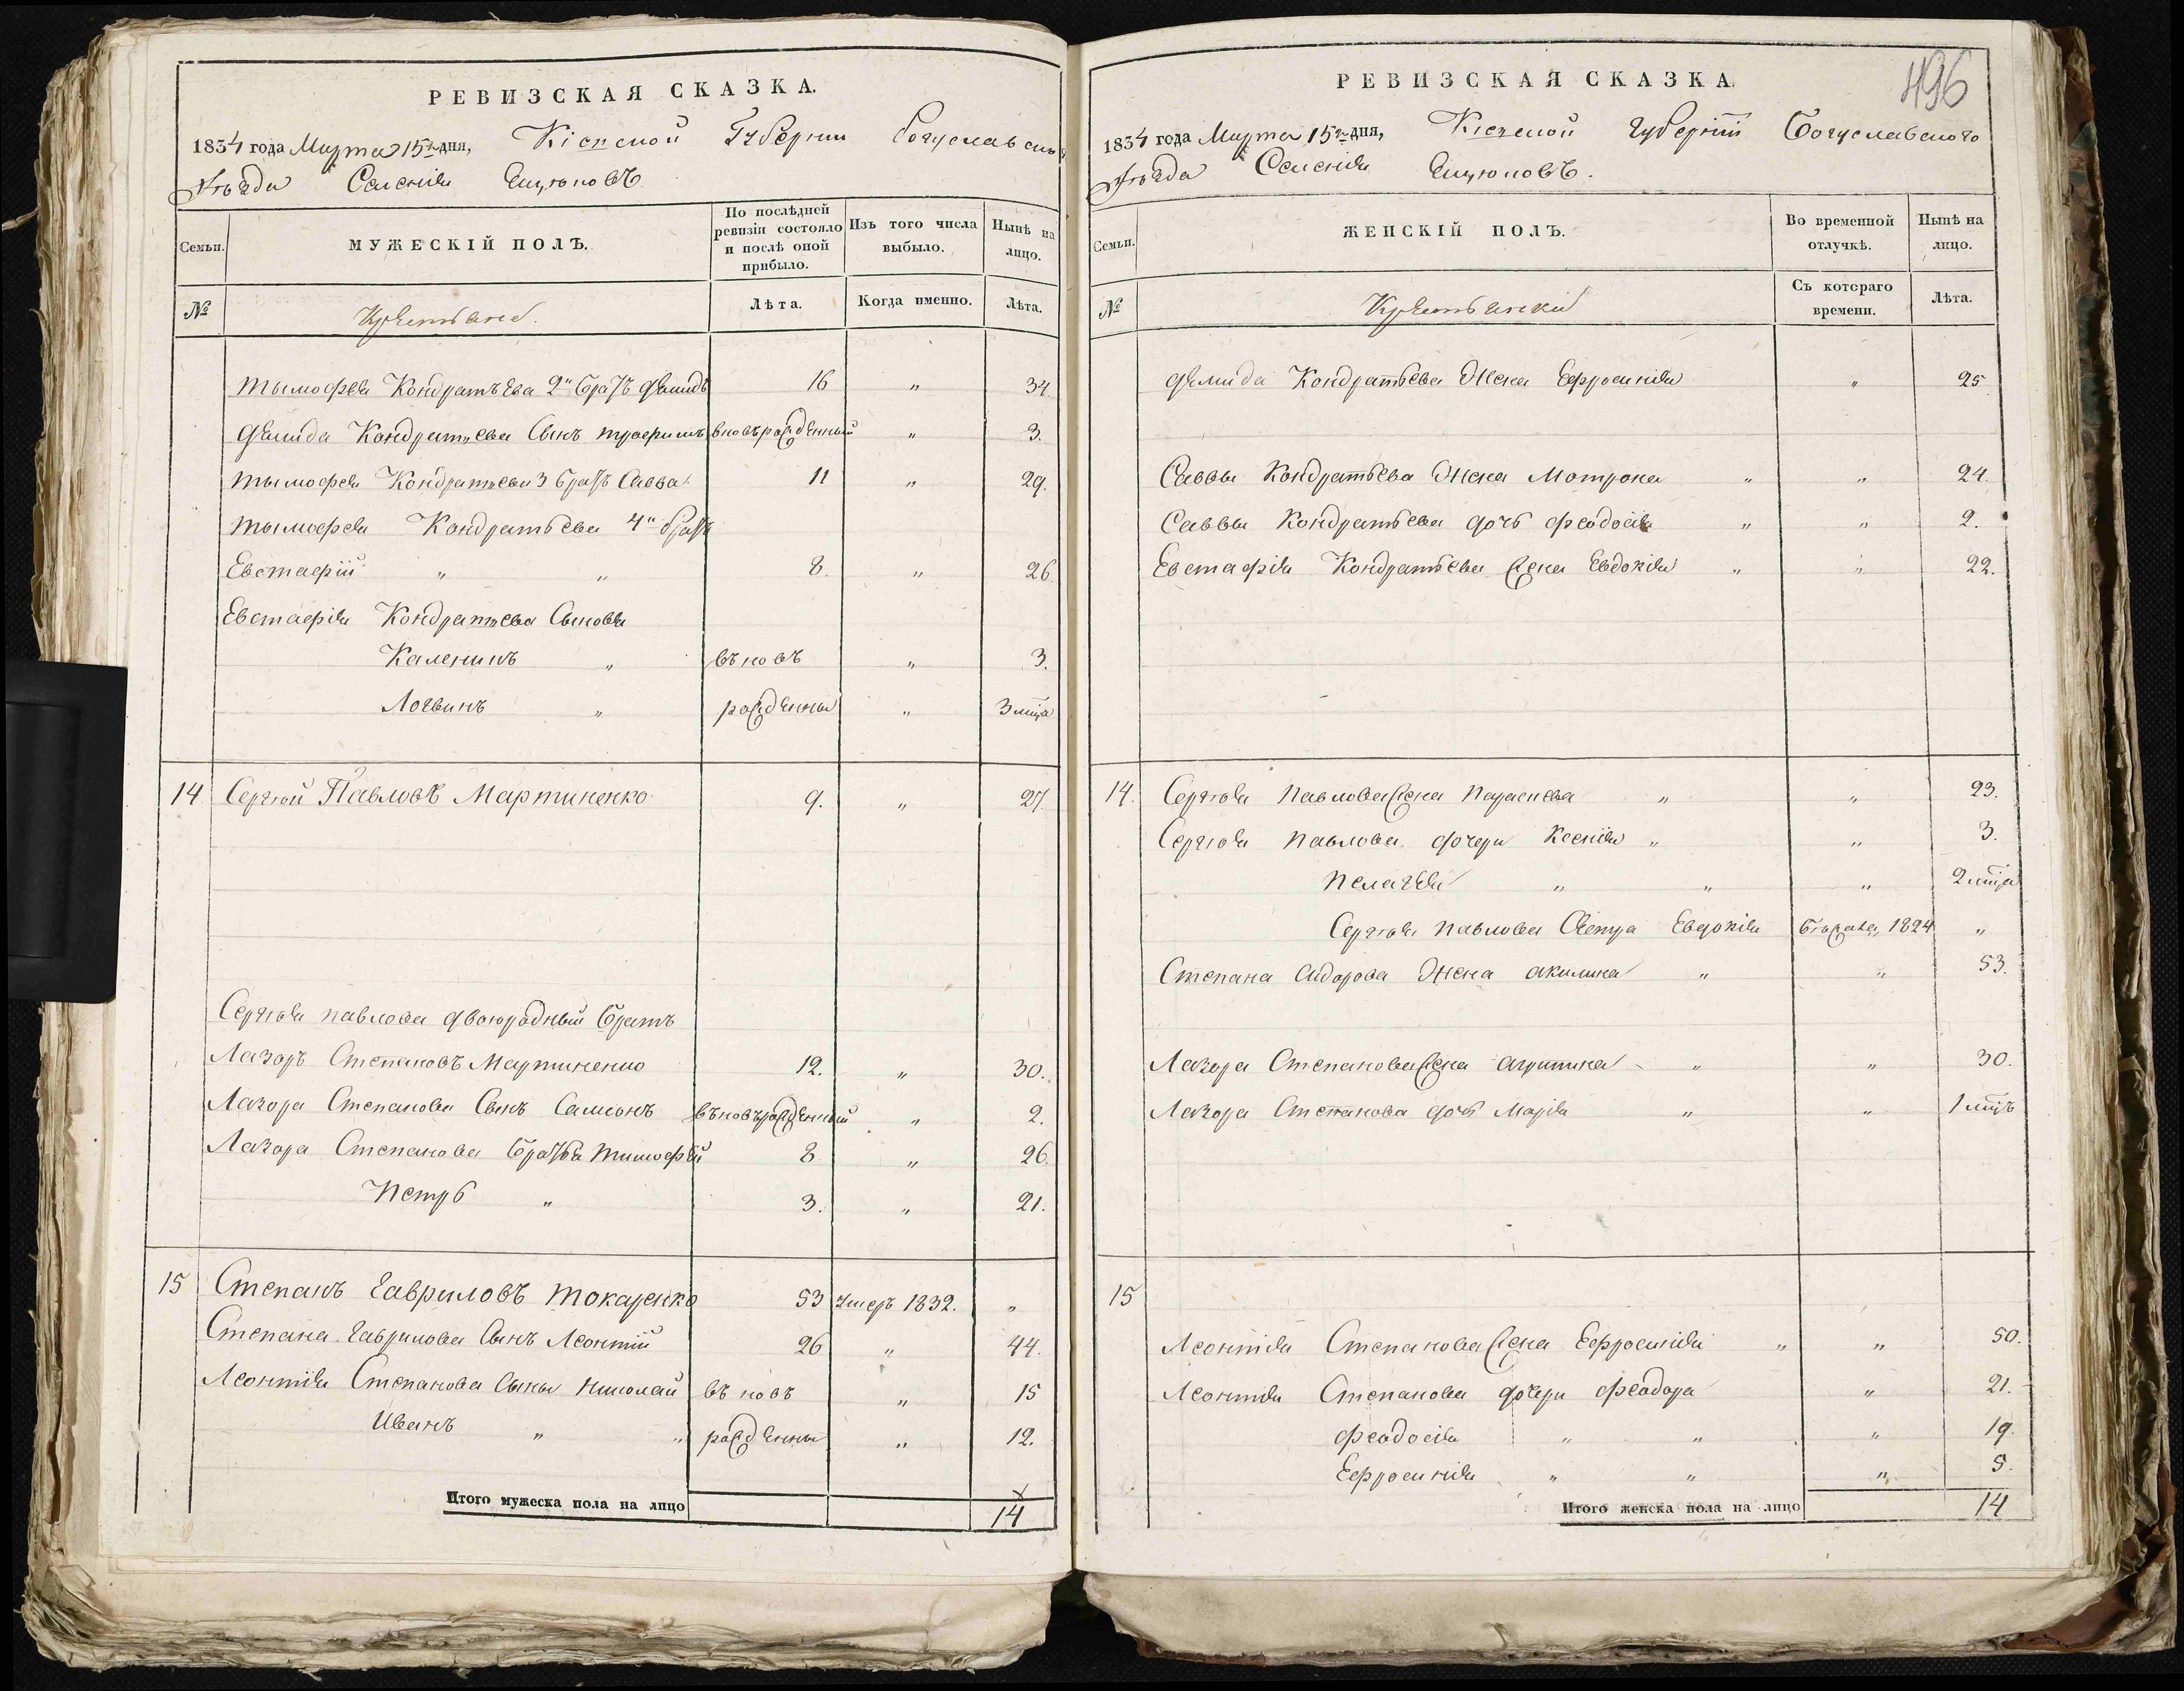 РЕВИЗСКАЯ СКАЗКА.
1834 года Марта 15го дня, Кіевской Губерніи Богуславскаго
Уѣзда Селенія Ещюковъ
Семьи.
МУЖЕСКІЙ ПОЛЪ.
По послѣдней ревизіи состояло и послѣ оной прибыло.
Изъ того числа выбыло.
Нынѣ на лицо.
№
Крестьяне.
Лѣта.
Когда именно.
Лѣта.
Тымофея Кондратьева 2й братъ Демидъ 16 " 34
Демида Кондратьева Сынъ Трофимъ вновърожденный " 3.
Тымофея Кондратьева 3 братъ Савва 11 " 29.
Тымофея Кондратьева 4й братъ
Евстафій " " 8. " 26
Евстафія Кондратьева Сыновья
Каленикъ " въновъ " 3.
Логвинъ " рожденны " 3 мца
14 Сергѣй Павловъ Мартиненко 9. " 27
Сергѣя Павлова двоюродный братъ
Лазоръ Степановъ Мартиненко 12. " 30.
Лазора Степанова Сынъ Самсонъ въновърожденный " 2.
Лазора Степанова Братья Тимофей 8 " 26.
Петръ " 3. " 21.
15 Степанъ Гавриловъ Токаренко 53 умеръ 1832. "
Степана Гаврилова Сынъ Леонтій 26 " 44.
Леонтія Степанова Сыны Николай въ новъ " 15
Иванъ " " рожденны " 12.
Итого мужеска пола на лицо 14
496
РЕВИЗСКАЯ СКАЗКА.
1834 года Марта 15го дня, Кіевской Губерніи Богуславского
Уѣзда Селенія Ещюковъ.
Семьи.
ЖЕНСКІЙ ПОЛЪ.
Во временной отлучкѣ.
Нынѣ на лицо.
№
Крестьянки
Съ котсраго времени.
Лѣта.
Демида Кондратьева Жена Ефросинія " 25
Саввы Кондратьева Жена Мотрона " " 24.
Саввы Кондратьева дочь Феодосія " " 2.
Евстафія Кондратьева Жена Евдокія " " 22.
14. Сергѣя Павлова Жена Параскева " " 23.
Сергѣя Павлова дочери Ксенія " " 3.
Пелагея " " " 2 мца
Сергѣя Павлова Сестра Евдокія 1824 "
Степана Сидорова Жена Акилина " " 53.
Лазора Степанова Жена Агрипина " " 30.
Лазора Степанова дочь Марія " " 1 мцъ
15
Леонтія Степанова Жена Ефросинія " " 50.
Леонтія Степанова дочери Феодора " 21.
Феодосія " " " 19.
Ефросинія " " " 5.
Итого женска пола на лицо 14